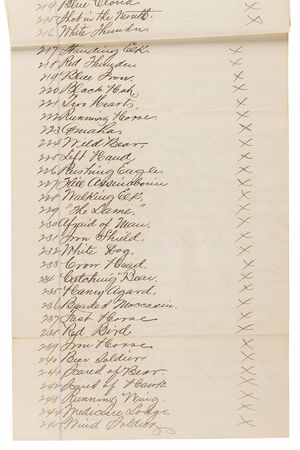 214 Blue Cloud X
215 Shot in the Mouth. X
216 White Thunder X
217 Standing Elk X
218 Red Thunder X
219 Blue Iron. X
220 Black Hok X
221 Two Hearts. X
222 Running Horse. X
223 Omaha X
224 Wild Bear X
225 Left Hand. X
226 Rushing Eagle X
227 Kill Assinaboin X
228 Walking Elk. X
229 "He Dame." X
230 Afraid of Man. X
231 Iron Shield. X
232 White Dog. X
233 Crow Head. X
234 Catching Bear. X
235 Henry Agard. X
236 Beaded Moccasin. X
237 Fast Horse X
238 Red Bird X
239 Iron Horse X
240 Bear Soldier X
241 Scared of Bear X
242 Scared of Hawk X
243 Running Wing. X
244 Medicine Lodge X
245 Wind Soldier X